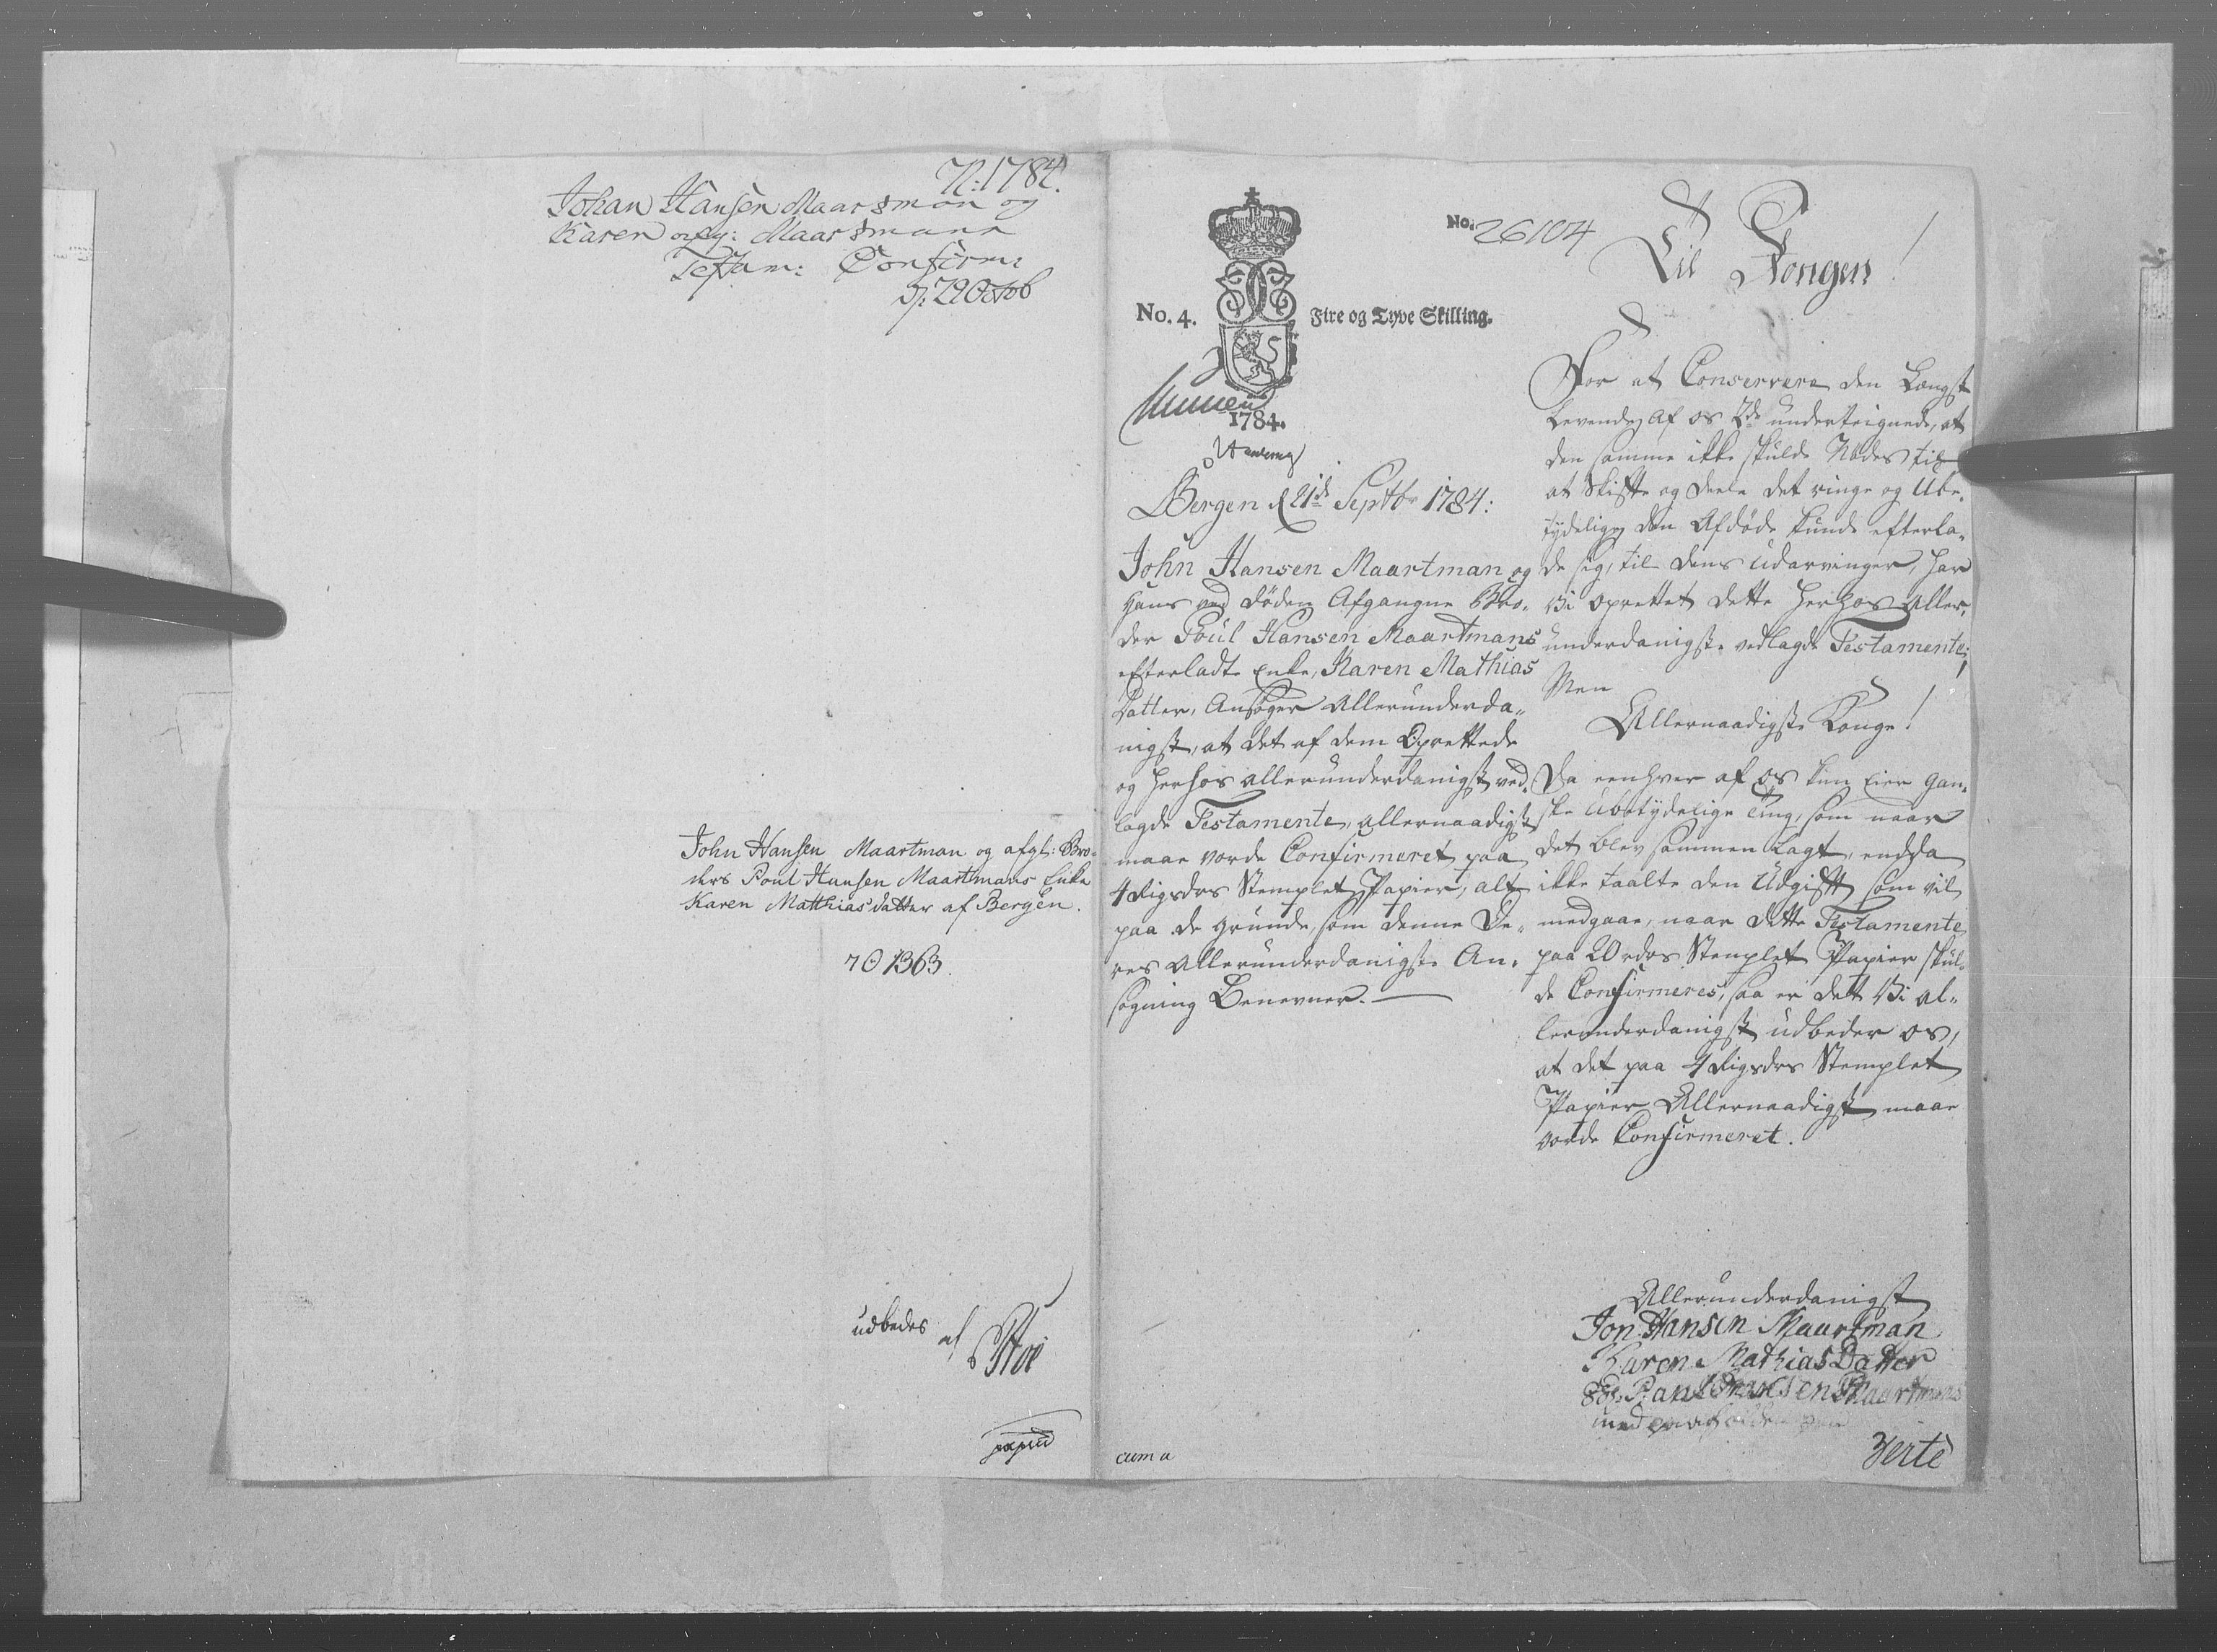 N: 1784.
Johan Hansen Maarsman og
Karen Maarsmans
Testam: Confirm:
D: 29 Octob
John Hansen Maartman og afgl: Bro-
ders Poul Hansen Maartmans Enke
Karen Matthiasdatter af Bergen.
1363.
udbedes af
No. 4.
Fire og Tyve Skilling.
1784.
Bergen d 21de Septbr 1784:
John Hansen Maartman og
hans ved døden Afgangne Bro-
der Poul Hansen Maartmans
efterladte Enke, Karen Mathias
Datter, Ansøger allerunderda-
nigst, at det af dem Oprettede
og herhos allerunderdanigst ved-
lagde Testamente, allernaadigst
maae vorde Confirmeret paa
4 Rigsdrs Stemplet Papier, alt
paa de grunde, som denne De-
res Allerunderdanigste An-
søgning Benevner.
cum a
No. 26104
Til Kongen!
For at Conservere den Længst
Levende af os 2de underteignede, at
den samme ikke skulde Nødes til
at Skifte og deele det ringe og Ube-
tydelige, den Afdøde kunde efterla-
de sig, til dens udarvinger, har
Vi oprettet dette herhos aller-
underdanigst vedlagde Testamente;
Men
Allernaadigste Konge!
Da eenhver af os kun Eier gan-
ske Ubetydelige Ting, som naar
det blev sammen Lagt, endda
ikke taalte den Udgift, som vil
medgaae, naar dette Testamente
paa 20 rdrs Stemplet Papier skul-
de Confirmeres, saa er det Vi al-
lerunderdanigst udbeder os,
at det paa 4 Rigsdrs Stemplet
Papier Allernaadigst maae
vorde Confirmeret.
Allerunderdanigst
Jon Hansen Maartman
Karen Mathias Datter
Hansen Maartmans
med paaholden pen
Verte